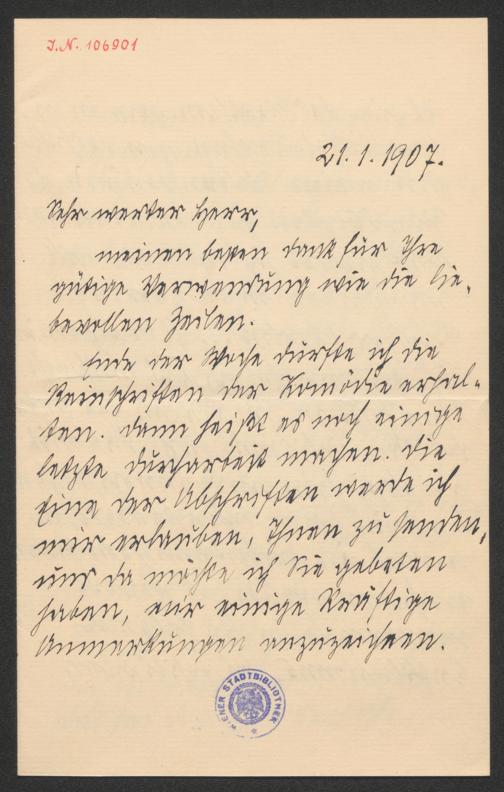 I.N. 106901
21.1.1907.
Sehr werter Herr,
meinen besten Dank für Ihre
gütige Verwendung wie die lie-
bevollen Zeilen.
Ende der Woche dürfte ich die
Reinschriften der Komödie erhal-
ten. Dann heißt es noch einige
letzte Durcharbeit machen. Die
Eine der Abschriften werde ich
mir erlauben, Ihnen zu senden,
und da möchte ich Sie gebeten
haben, mir einige kräftige
Anmerkungen anzuzeichnen.
WIENER STADTBIBLIOTHEK